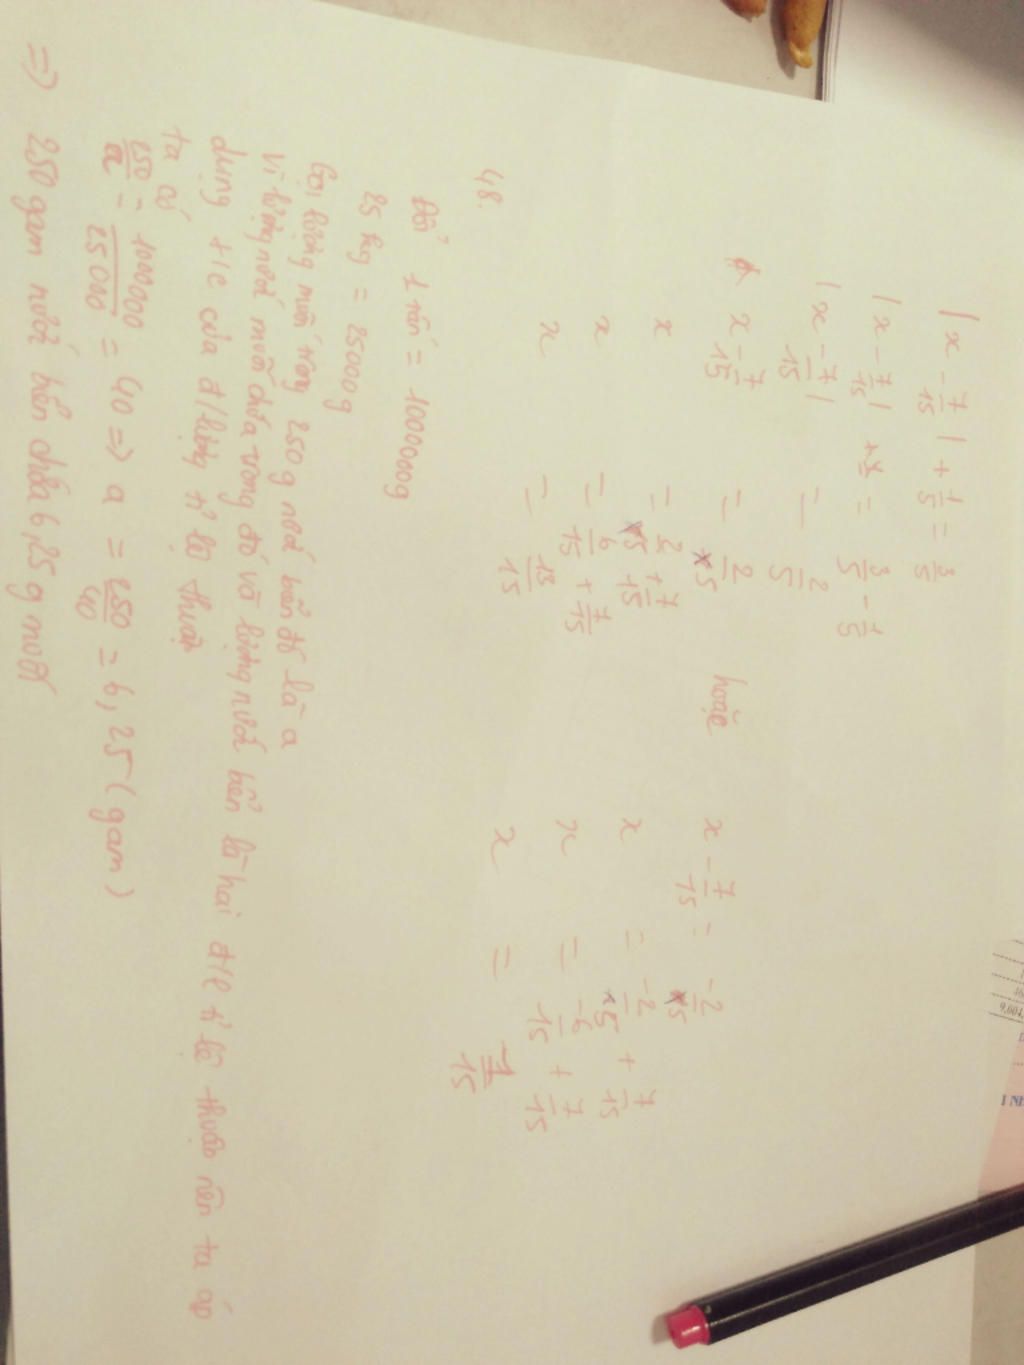 |x - 7/15| + 1/5 = 3/5
|x - 7/15| + 1/5 = 3/5 - 1/5
|x - 7/15| = 2/5
x - 7/15 = 2/5 hoặc x - 7/15 = -2/5
x = 2/5 + 7/15 x = -2/5 + 7/15
x = 6/15 + 7/15 x = -6/15 + 7/15
x = 13/15 x = 1/15
48.
Đổi 1 tấn = 1000000g
25 kg = 25000g
Gọi lượng muối trong 250g nước biển đó là a
Vì lượng nước muối chứa trong đó và lượng nước biển là hai đ/l tỉ lệ thuận nên ta áp
dụng t/c của đ/lượng tỉ lệ thuận
ta có
250/a = 1000000/25000 = 40 => a = 250/40 = 6,25 (gam)
=> 250 gam nước biển chứa 6,25g muối